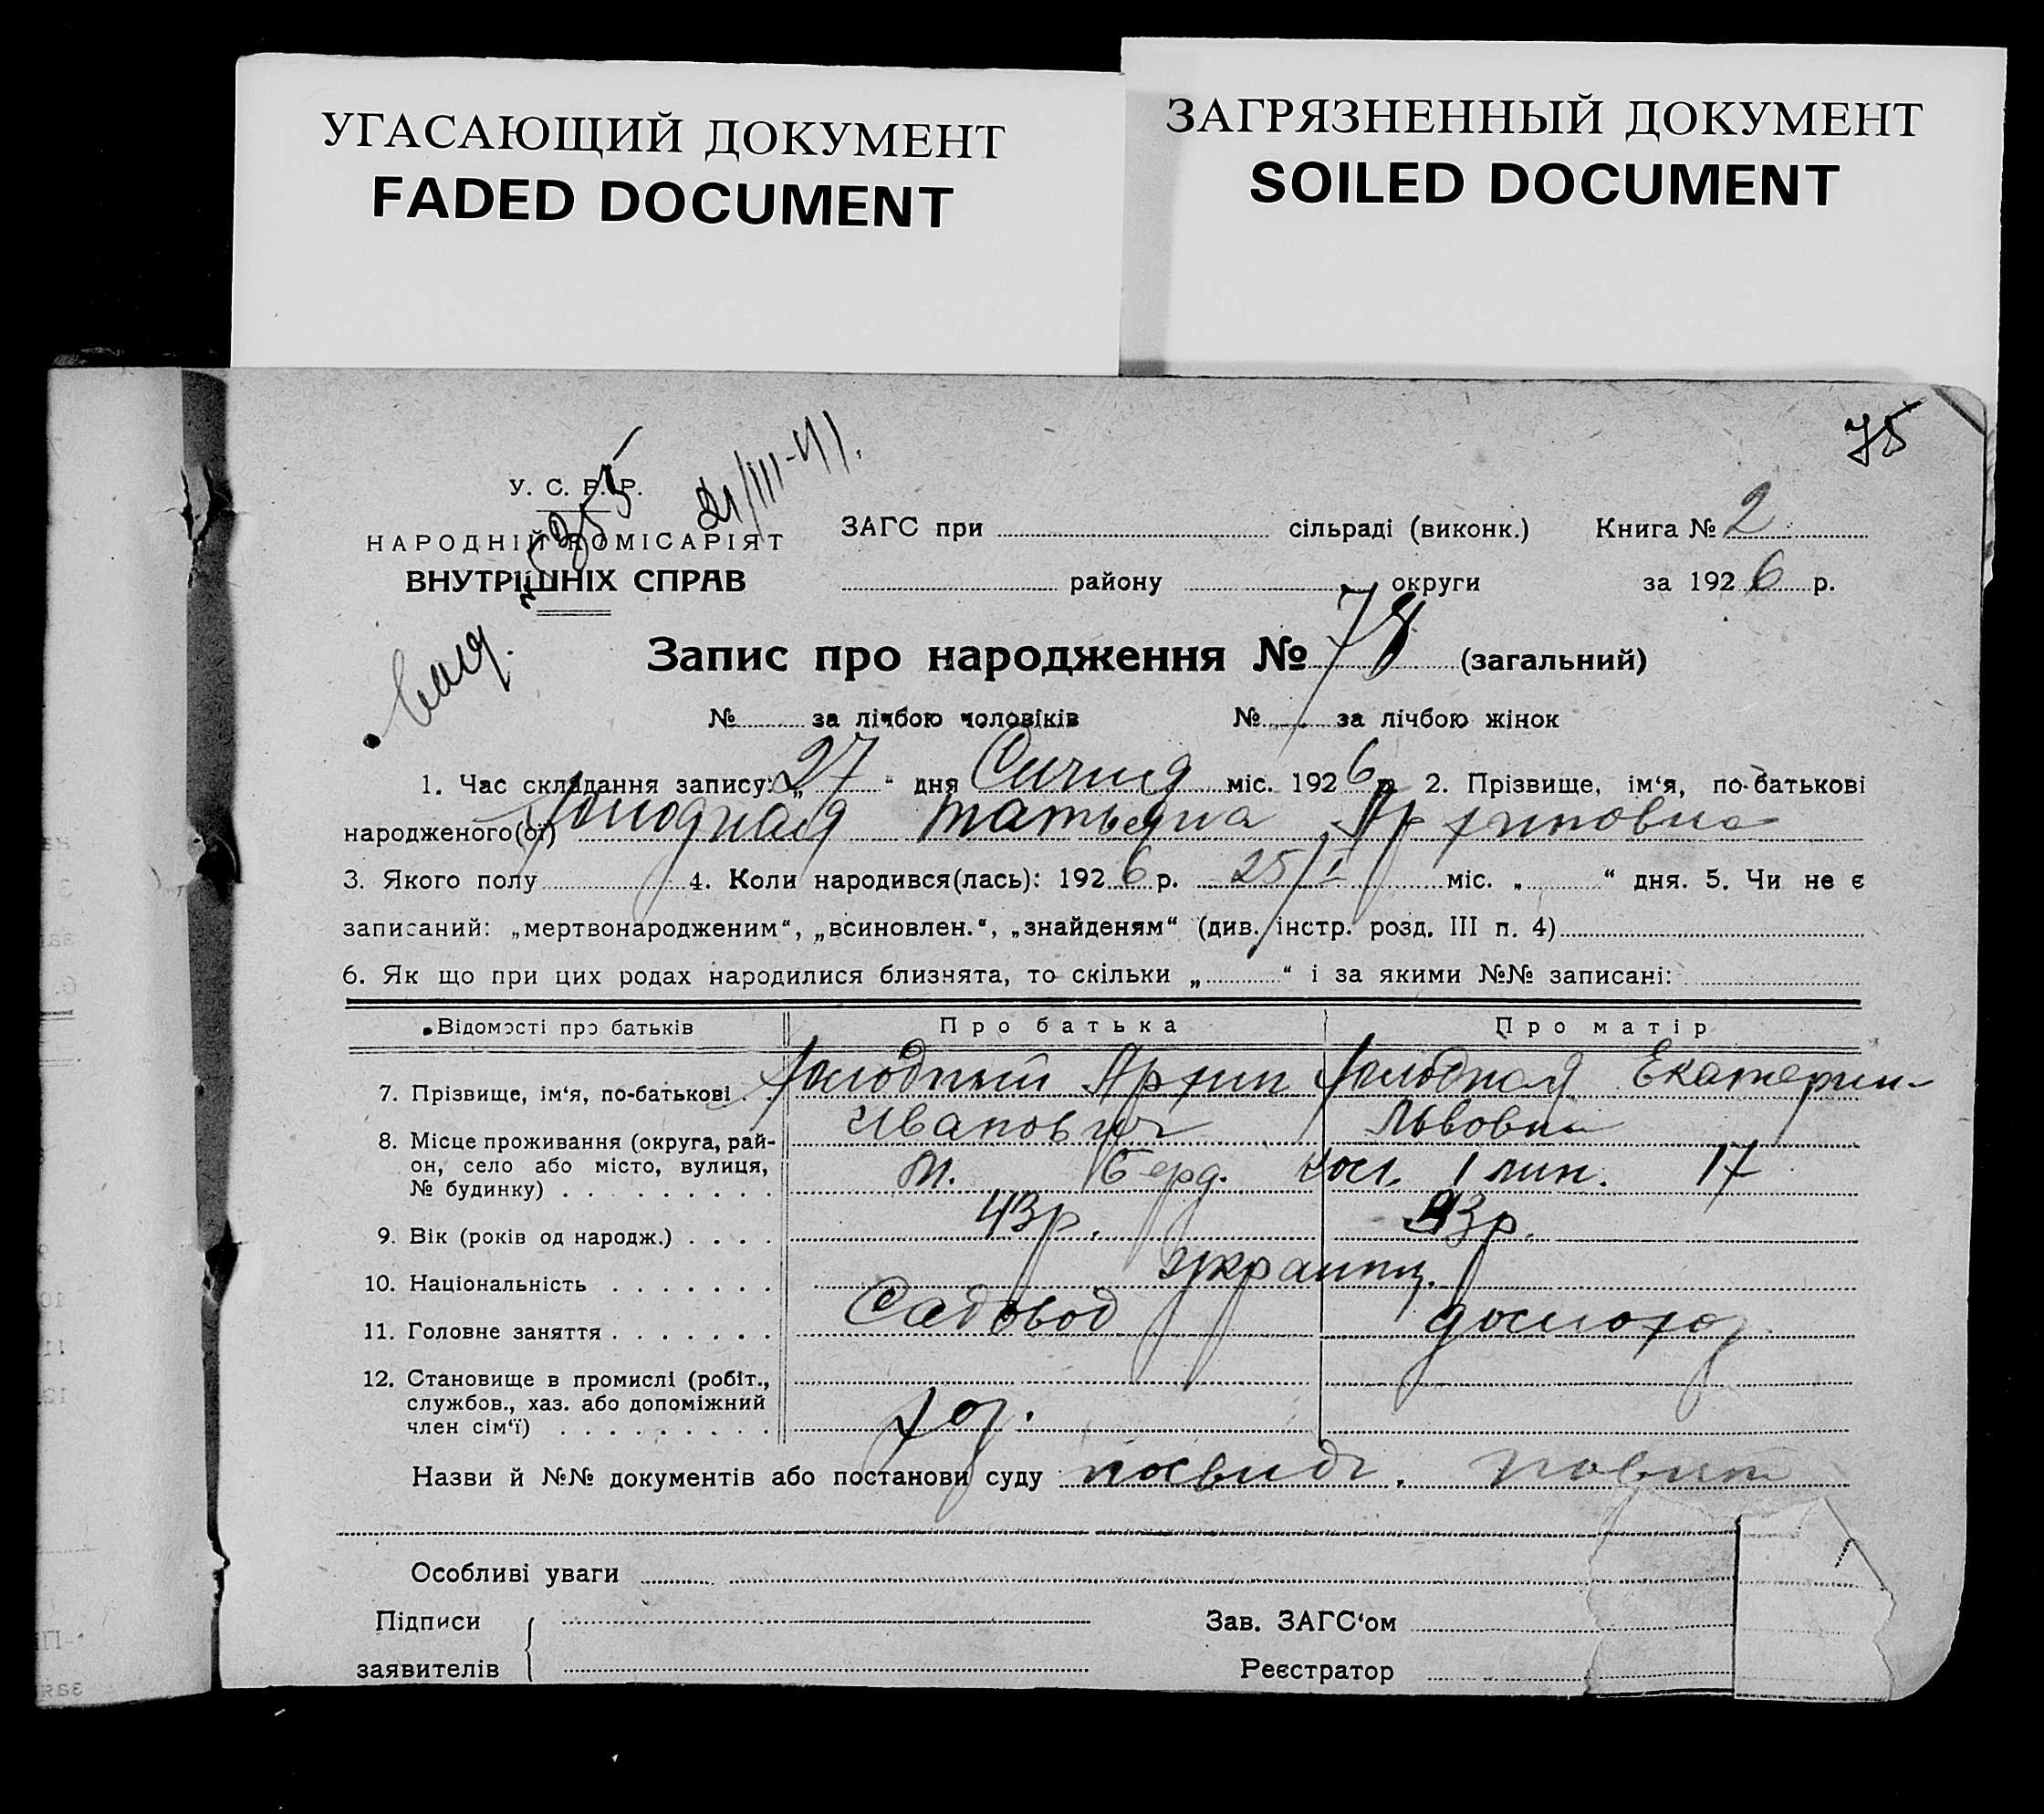 УГАСАЮЩИЙ ДОКУМЕНТ
FADED DOCUMENT
ЗАГРЯЗНЕННЫЙ ДОКУМЕНТ
SOILED DOCUMENT
75
21/III-41.
У. С. Р. Р.
НАРОДНІЙ КОМІСАРІЯТ
ВНУТРІШНІХ СПРАВ
ЗАГС при сільраді (виконк.) Книга № 2
району округи за 1926 р.
Запис про народження № 78 (загальний)
№ за лічбою чоловіків № за лічбою жінок
1. Час складання запису: „27“ дня Січня міс. 1926 р. 2. Прізвище, ім‘я, по-батькові
народженого(ої) Холодная Татьяна Архиповна
3. Якого полу 4. Коли народився(лась): 1926 р. 25/I міс. „ “ дня. 5. Чи не є
записаний: „мертвонародженим“, „всиновлен.“, „знайденям“ (див. інстр. розд. III п. 4)
6. Як що при цих родах народилися близнята, то скільки „ “ і за якими №№ записані:
Відомості про батьків Про батька Про матір
7. Прізвище, ім‘я, по-батькові Холодный Архип Холодная Екатерин-
Иванович Львовна
8. Місце проживання (округа, рай-
он, село або місто, вулиця,
№ будинку) М. Берд. 1 лин. 17
9. Вік (років од народж.) 43 р. 43 р.
10. Національність украинц.
11. Головне заняття Садовод домохоз.
12. Становище в промислі (робіт.,
службов., хаз. або допоміжний
член сім‘ї) хоз.
Назви й №№ документів або постанови суду посвидч. повит
Особливі уваги
Підписи
заявителів
Зав. ЗАГС‘ом
Реєстратор